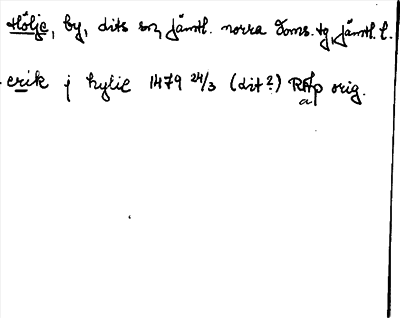 Hölje, by, Lits sn, Jämtl. norra doms. tg, Jämtl. l.
erik j hylie 1479 24/3 (dit?) RAp orig.
a